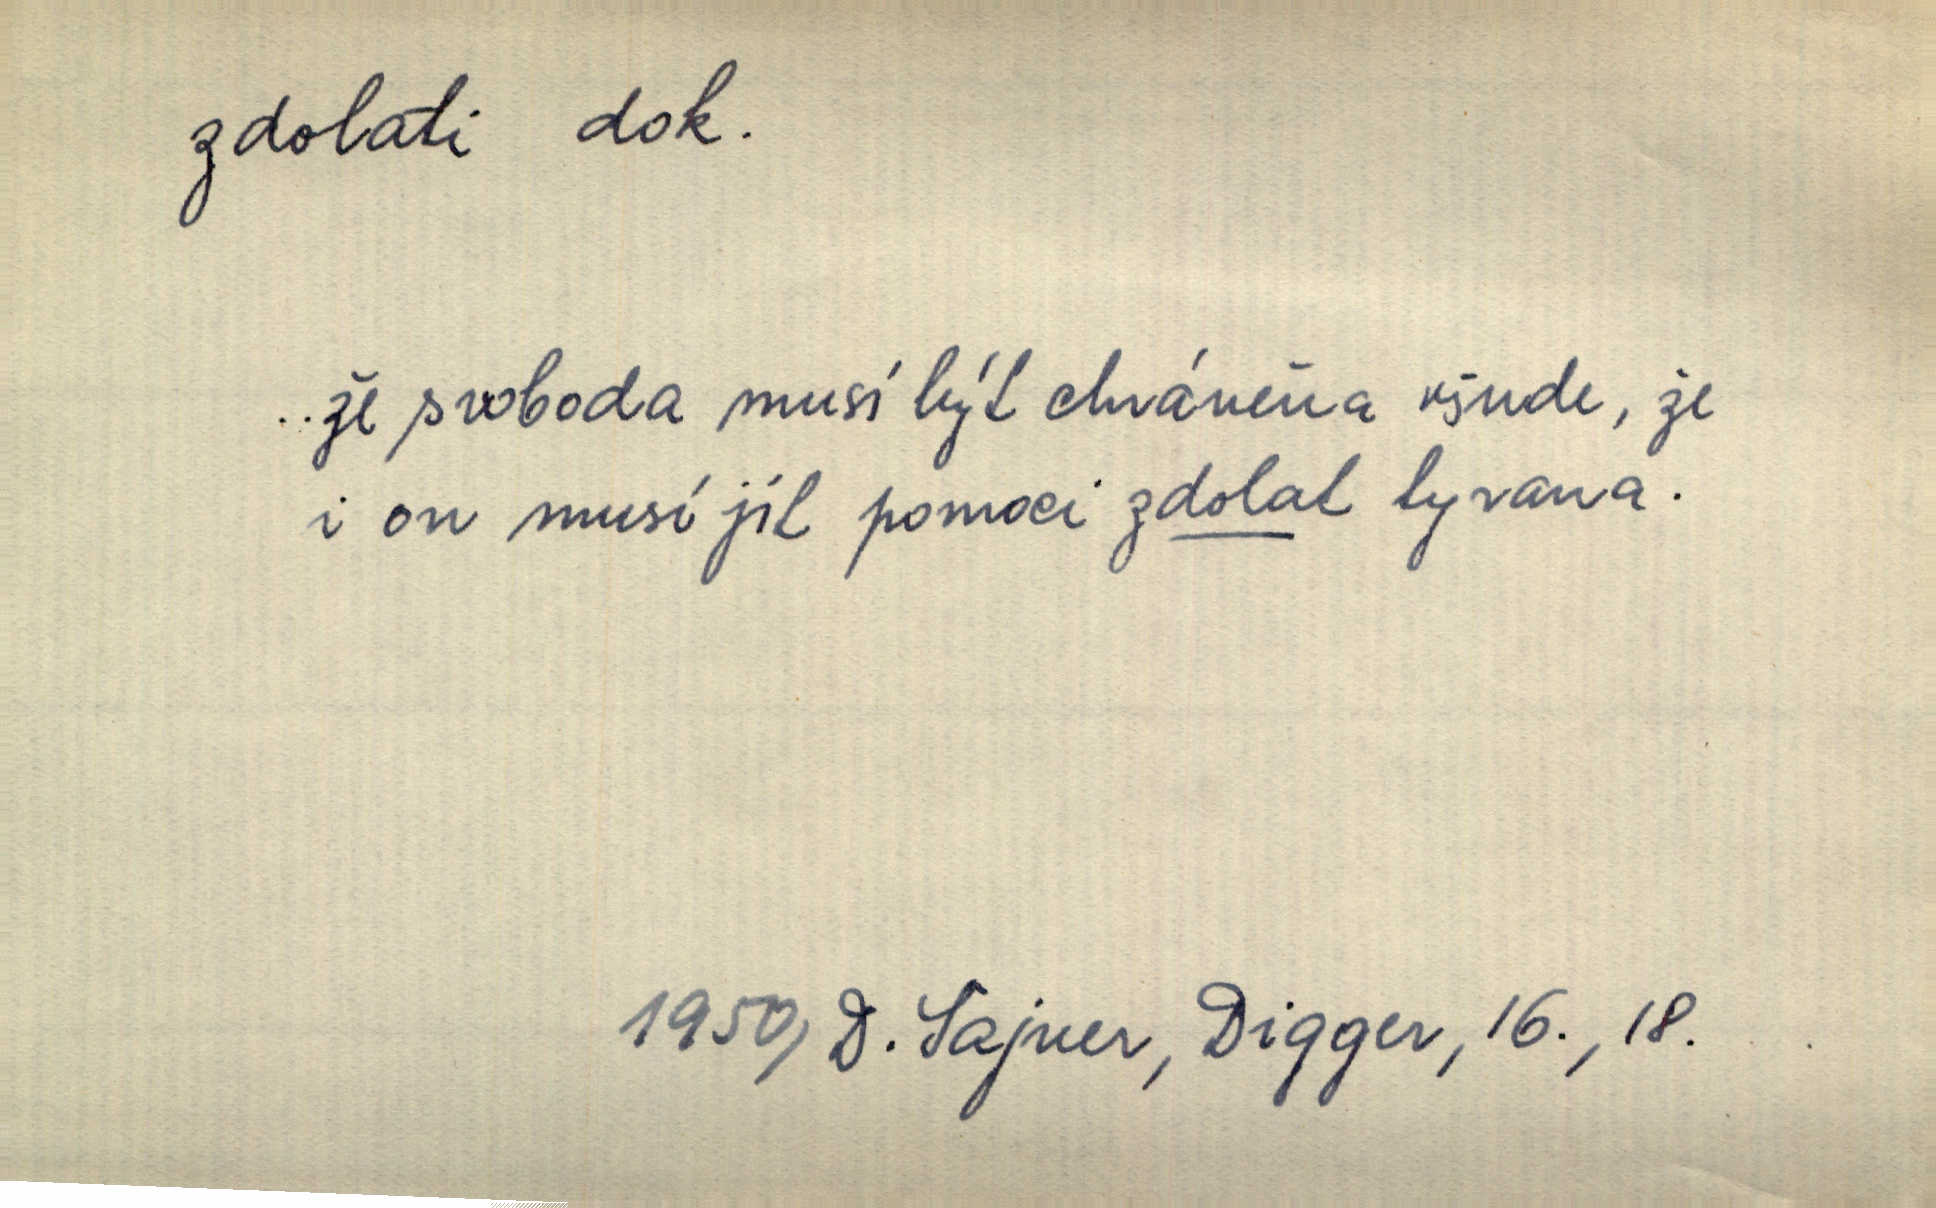 zdolati dok.
..že svoboda musí být chráněna všude, že
i on musí jít pomoci zdolat tyrana.
1950, D. Šajner, Digger, 16., 18.